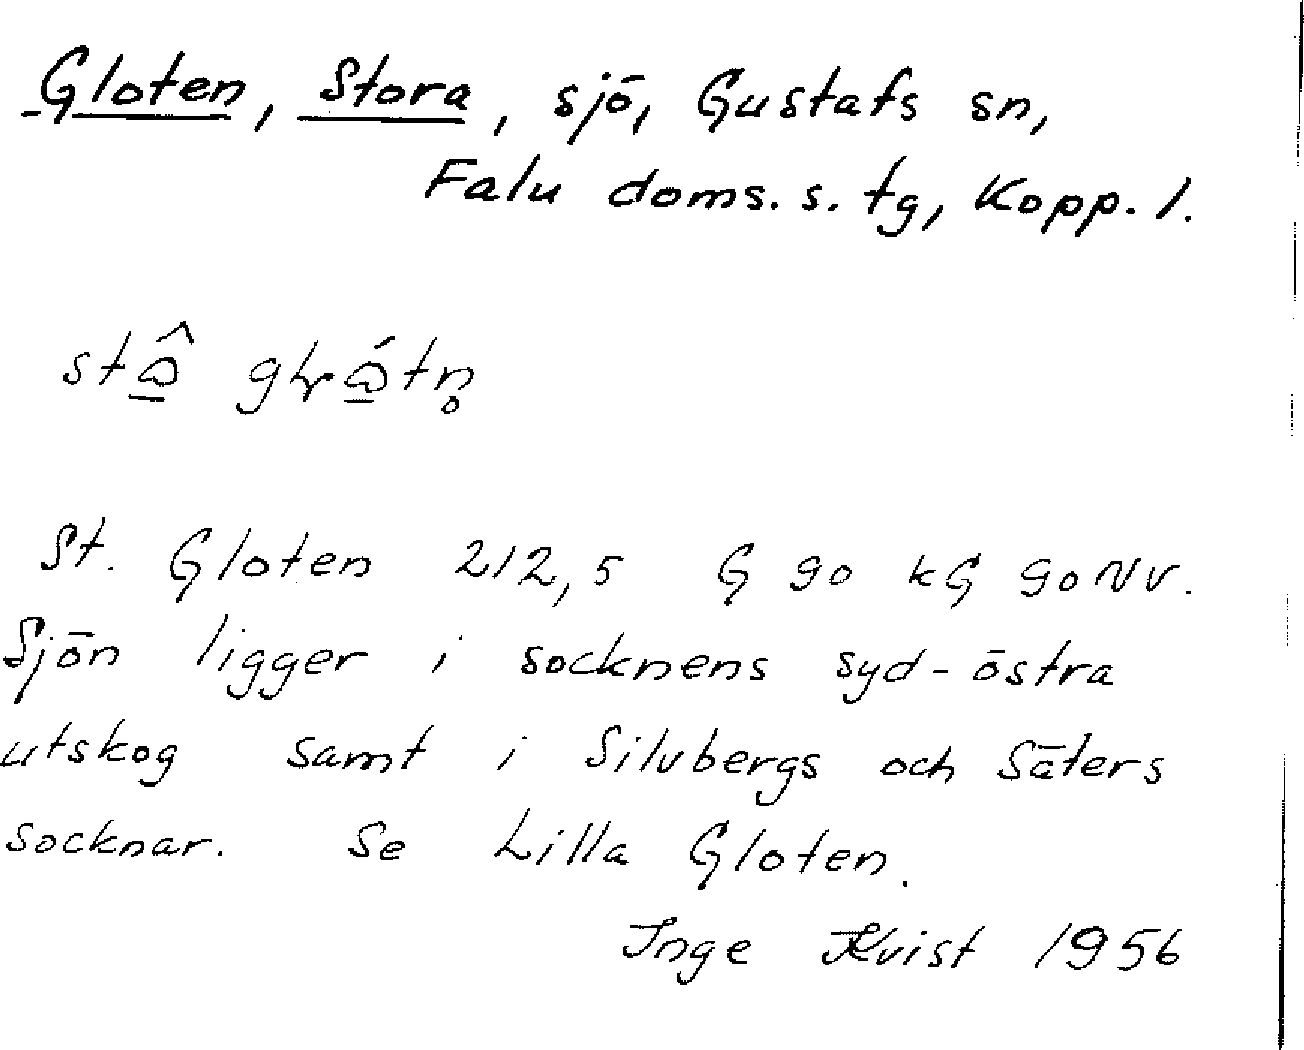 Gloten, Stora, sjö, Gustafs sn,
Falu doms. s. tg, Kopp. l.
St. Gloten 212,5 G 90 kG 90 NV.
Sjön ligger i socknens syd-östra
utskog samt i Silvbergs och Säters
socknar. Se Lilla Gloten.
Inge Kvist 1956